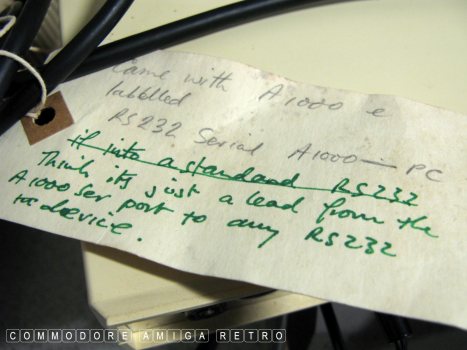 Came with A1000 e
labelled
RS232 Serial A1000 — PC
if into a standard RS232
Think its just a lead from the
A1000 ser port to any RS232
device.
COMMODORE AMIGA RETRO